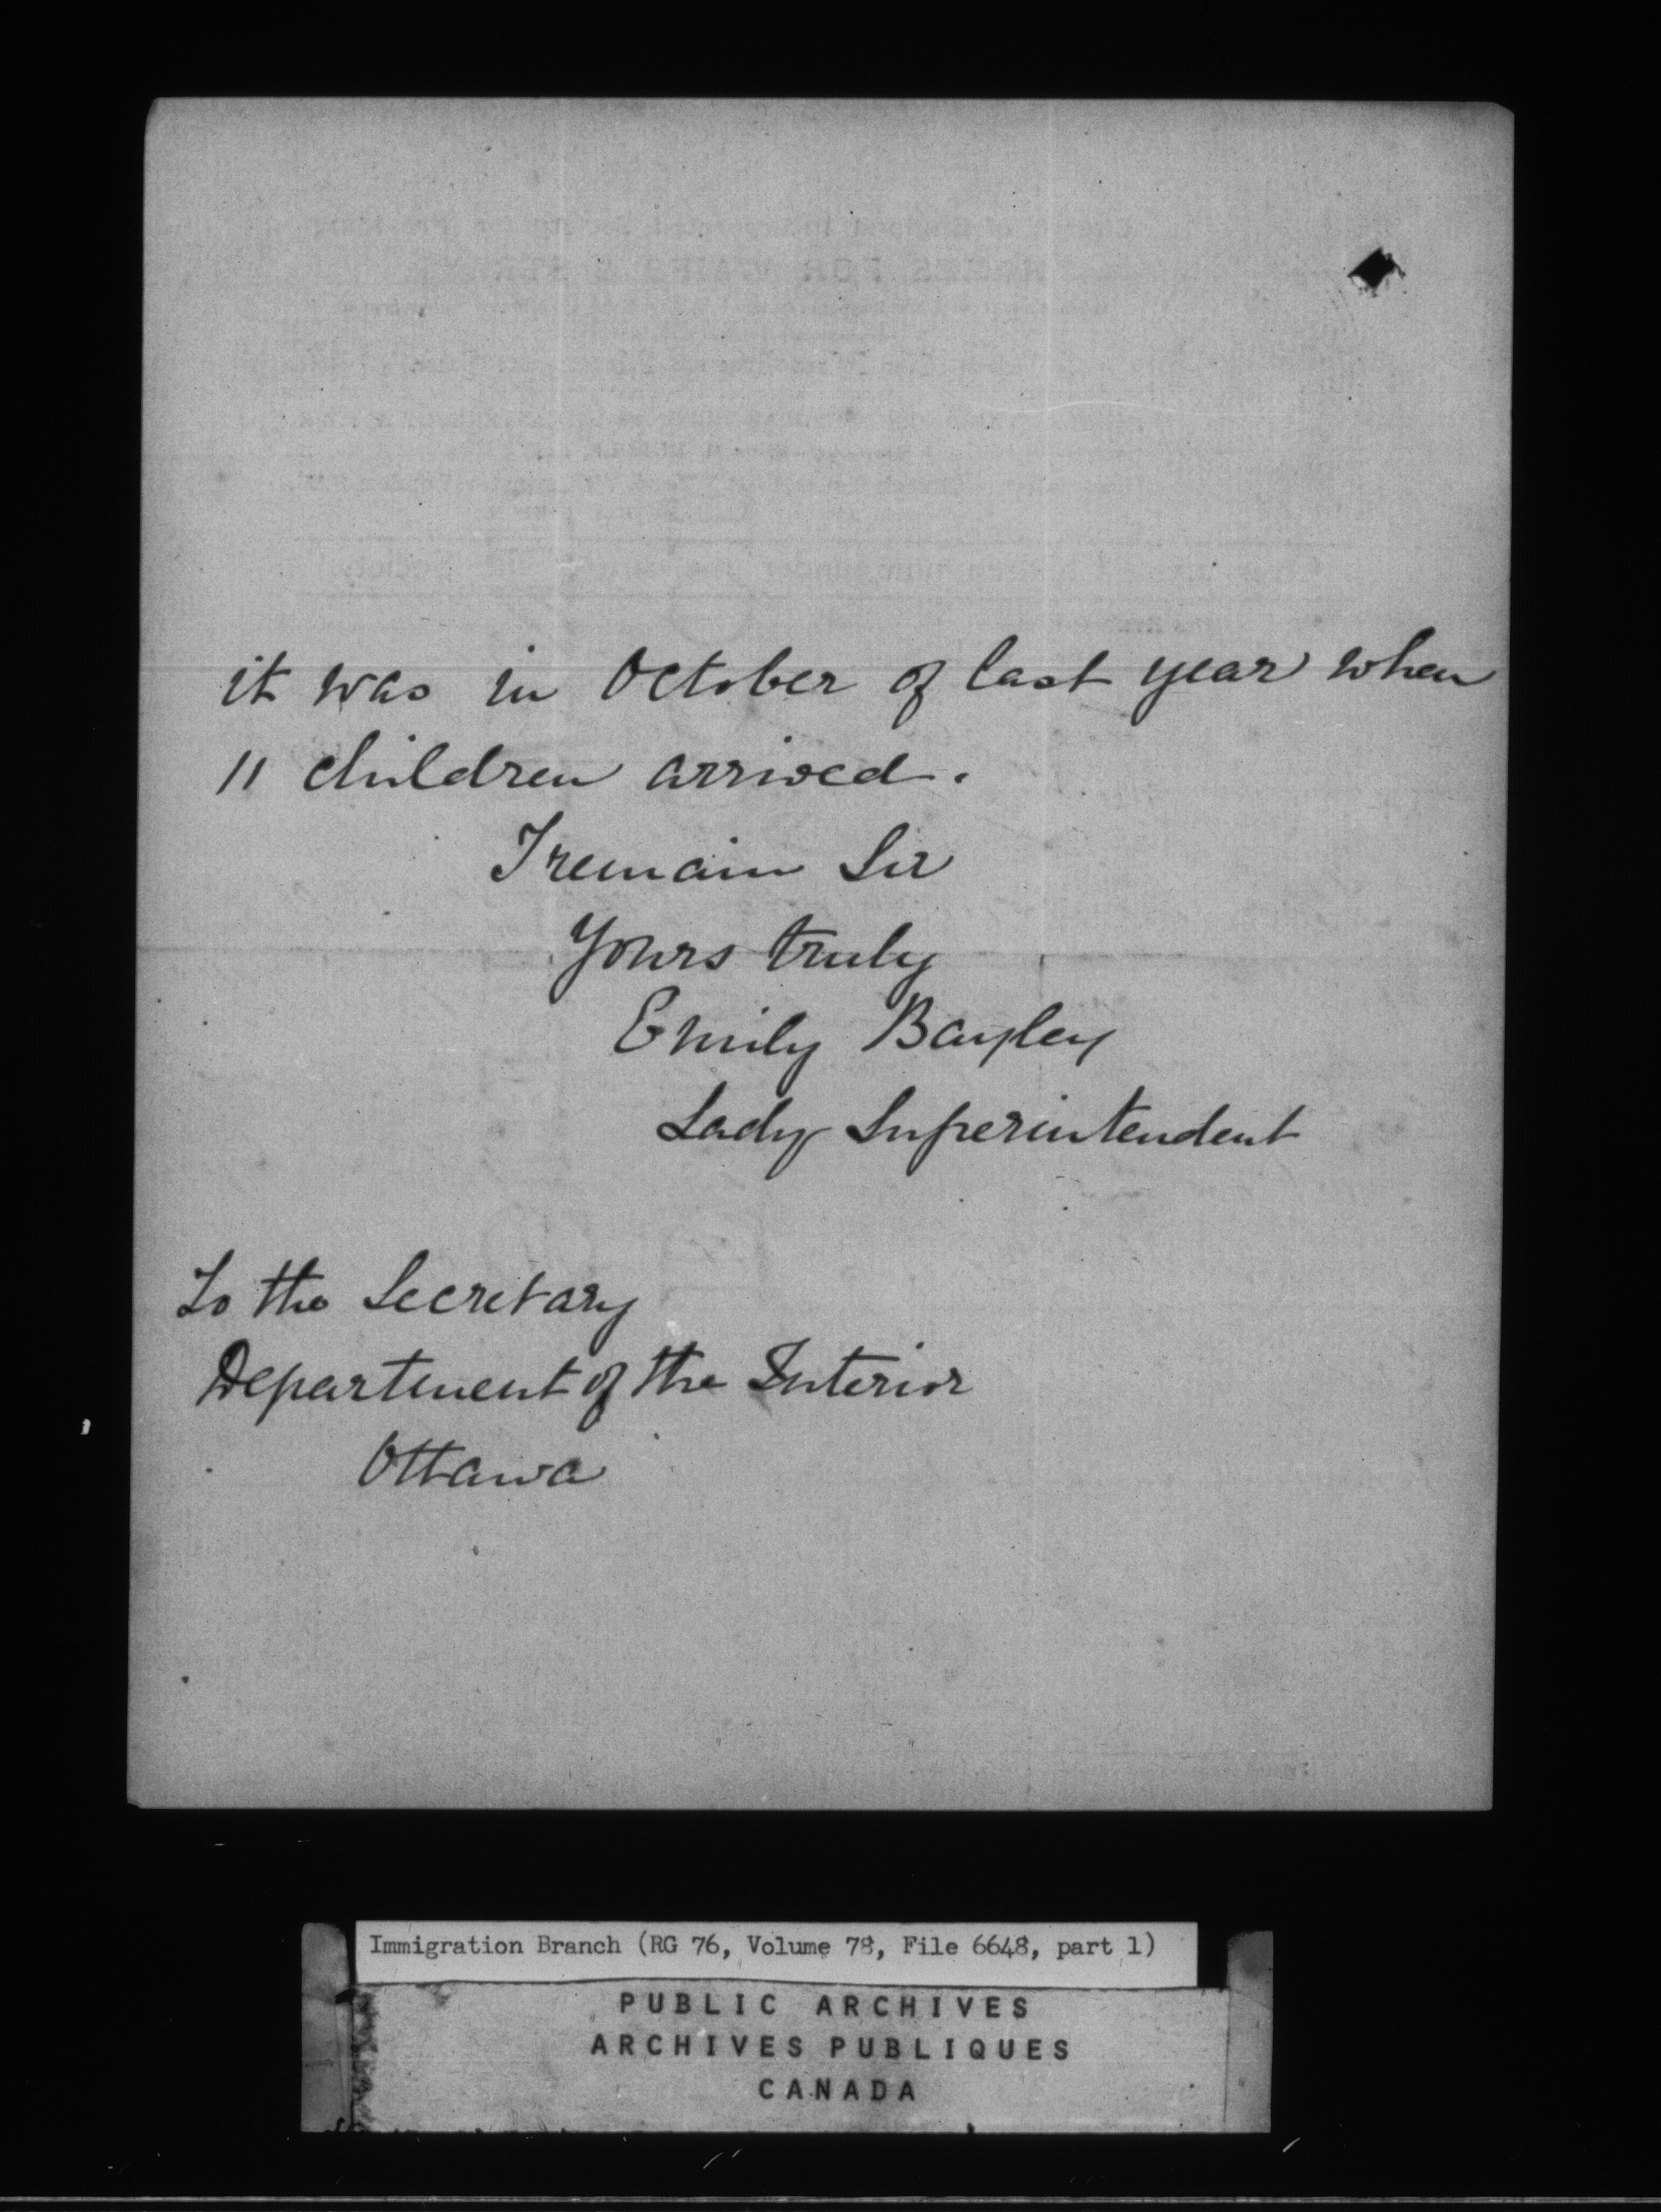 it was in October of last year when
11 children arrived.
I remain Sir
Yours truly
Emily Bayley
Lady Superintendent
To the Secretary
Department of the Interior
Ottawa
Immigration Branch (RG 76, Volume 78, File 6648, part 1)
PUBLIC ARCHIVES
ARCHIVES PUBLIQUES
CANADA